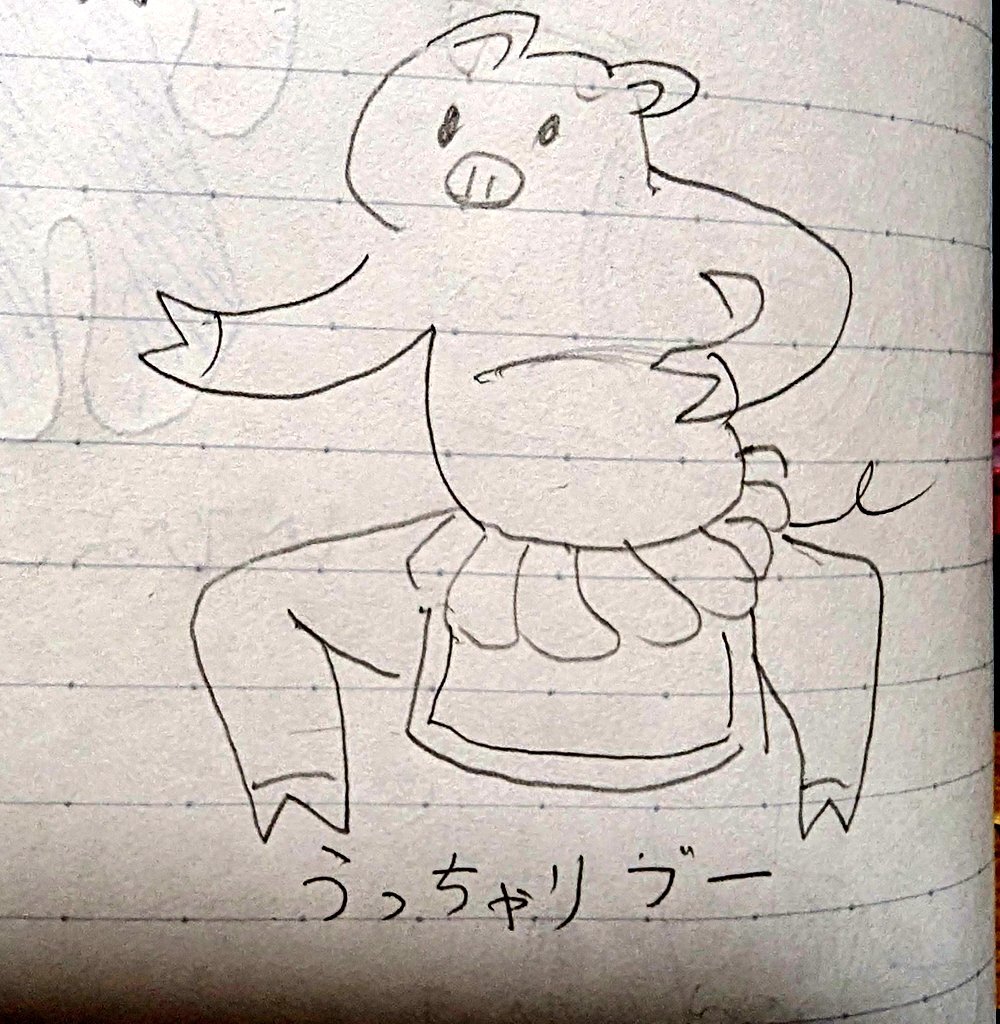 うっちゃりブー